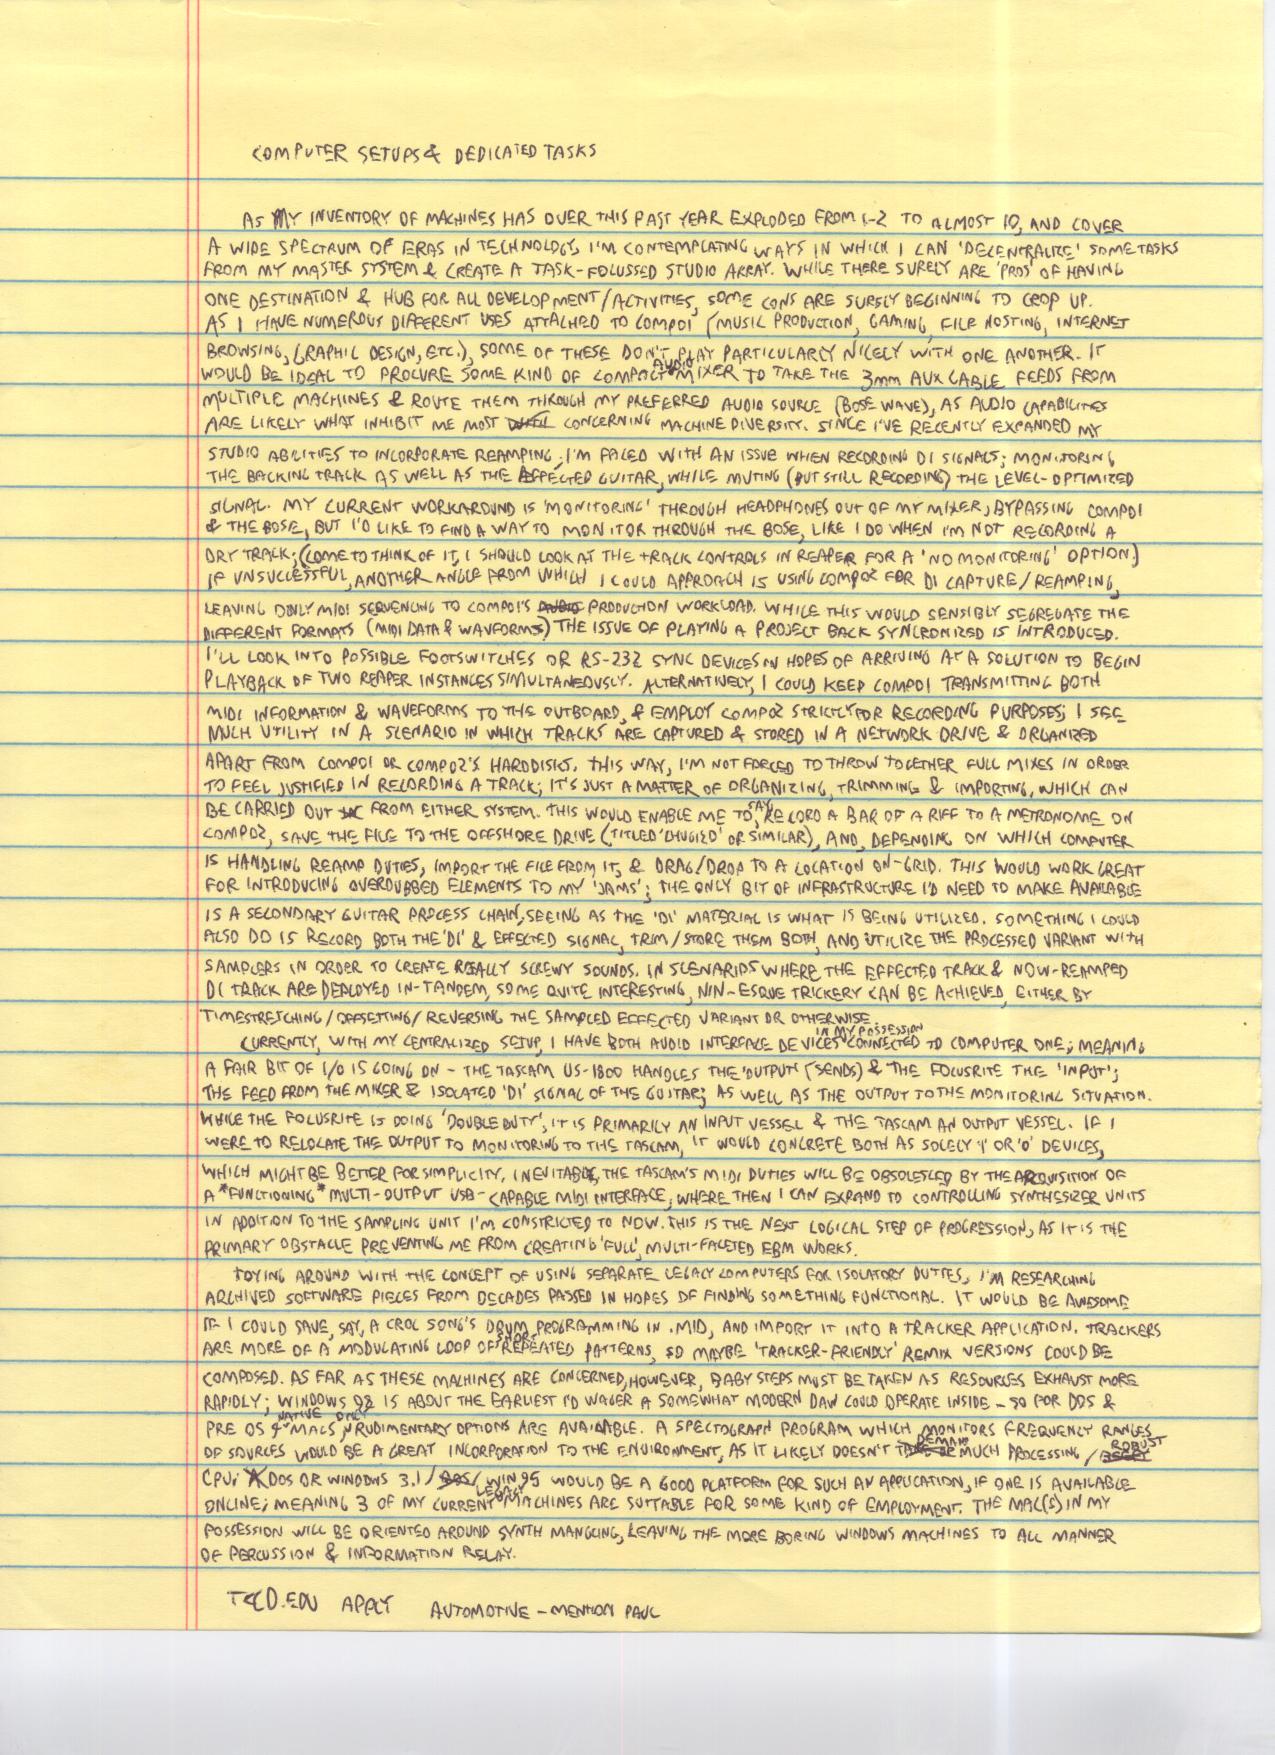 COMPUTER SETUPS & DEDICATED TASKS
AS MY INVENTORY OF MACHINES HAS OVER THIS PAST YEAR EXPLODED FROM 1-2 TO ALMOST 10, AND COVER
A WIDE SPECTRUM OF ERAS IN TECHNOLOGY, I'M CONTEMPLATING WAYS IN WHICH I CAN 'DECENTRALIZE' SOME TASKS
FROM MY MASTER SYSTEM & CREATE A TASK-FOCUSSED STUDIO ARRAY. WHILE THERE SURELY ARE 'PROS' OF HAVING
ONE DESTINATION & HUB FOR ALL DEVELOPMENT/ACTIVITIES, SOME CONS ARE SURELY BEGINNING TO CROP UP.
AS I HAVE NUMEROUS DIFFERENT USES ATTACHED TO COMP01 (MUSIC PRODUCTION, GAMING, FILE HOSTING, INTERNET
BROWSING, GRAPHIC DESIGN, ETC.), SOME OF THESE DON'T PLAY PARTICULARLY NICELY WITH ONE ANOTHER. IT
WOULD BE IDEAL TO PROCURE SOME KIND OF COMPACT AUDIO MIXER TO TAKE THE 3mm AUX CABLE FEEDS FROM
MULTIPLE MACHINES & ROUTE THEM THROUGH MY PREFERRED AUDIO SOURCE (BOSE WAVE), AS AUDIO CAPABILITES
ARE LIKELY WHAT INHIBIT ME MOST CONCERNING MACHINE DIVERSITY. SINCE I'VE RECENTLY EXPANDED MY
STUDIO ABILITIES TO INCORPORATE REAMPING, I'M FACED WITH AN ISSUE WHEN RECORDING DI SIGNALS; MONITORING
THE BACKING TRACK AS WELL AS THE EFFECTED GUITAR, WHILE MUTING (BUT STILL RECORDING) THE LEVEL-OPTIMIZED
SIGNAL. MY CURRENT WORKAROUND IS 'MONITORING' THROUGH HEADPHONES OUT OF MY MIXER, BYPASSING COMP01
& THE BOSE, BUT I'D LIKE TO FIND A WAY TO MONITOR THROUGH THE BOSE, LIKE I DO WHEN I'M NOT RECORDING A
DRY TRACK; (COME TO THINK OF IT, I SHOULD LOOK AT THE TRACK CONTROLS IN REAPER FOR A 'NO MONITORING' OPTION.)
IF UNSUCCESSFUL, ANOTHER ANGLE FROM WHICH I COULD APPROACH IS USING COMP02 FOR DI CAPTURE/REAMPING,
LEAVING ONLY MIDI SEQUENCING TO COMP01'S PRODUCTION WORKLOAD. WHILE THIS WOULD SENSIBLY SEGREGATE THE
DIFFERENT FORMATS (MIDI DATA & WAVFORMS) THE ISSUE OF PLAYING A PROJECT BACK SYNCRONIZED IS INTRODUCED.
I'LL LOOK INTO POSSIBLE FOOTSWITCHES OR RS-232 SYNC DEVICES IN HOPES OF ARRIVING AT A SOLUTION TO BEGIN
PLAYBACK OF TWO REAPER INSTANCES SIMULTANEOUSLY. ALTERNATIVELY, I COULD KEEP COMP01 TRANSMITTING BOTH
MIDI INFORMATION & WAVEFORMS TO THE OUTBOARD, & EMPLOY COMP02 STRICTLY FOR RECORDING PURPOSES; I SEE
MUCH UTILITY IN A SCENARIO IN WHICH TRACKS ARE CAPTURED & STORED IN A NETWORK DRIVE & ORGANIZED
APART FROM COMP01 OR COMP02'S HARDDISKS. THIS WAY, I'M NOT FORCED TO THROW TOGETHER FULL MIXES IN ORDER
TO FEEL JUSTIFIED IN RECORDING A TRACK; IT'S JUST A MATTER OF ORGANIZING, TRIMMING & IMPORTING, WHICH CAN
BE CARRIED OUT FROM EITHER SYSTEM. THIS WOULD ENABLE ME TO, SAY, RECORD A BAR OF A RIFF TO A METRONOME ON
COMP02, SAVE THE FILE TO THE OFFSHORE DRIVE (TITLED 'CHUG120' OR SIMILAR), AND, DEPENDING ON WHICH COMPUTER
IS HANDLING REAMP DUTIES, IMPORT THE FILE FROM IT, & DRAG/DROP TO A LOCATION ON-GRID. THIS WOULD WORK GREAT
FOR INTRODUCING OVERDUBBED ELEMENTS TO MY 'JAMS'; THE ONLY BIT OF INFRASTRUCTURE I'D NEED TO MAKE AVAILABLE
IS A SECONDARY GUITAR PROCESS CHAIN, SEEING AS THE 'DI' MATERIAL IS WHAT IS BEING UTILIZED. SOMETHING I COULD
ALSO DO IS RECORD BOTH THE 'DI' & EFFECTED SIGNAL, TRIM/STORE THEM BOTH, AND UTILIZE THE PROCESSED VARIANT WITH
SAMPLERS IN ORDER TO CREATE REALLY SCREWY SOUNDS. IN SCENARIOS WHERE THE EFFECTED TRACK & NOW-REAMPED
DI TRACK ARE DEPLOYED IN-TANDEM, SOME QUITE INTERESTING, NIN-ESQUE TRICKERY CAN BE ACHIEVED, EITHER BY
TIMESTRETCHING/OFFSETTING/REVERSING THE SAMPLED EFFECTED VARIANT OR OTHERWISE.
CURRENTLY, WITH MY CENTRALIZED SETUP, I HAVE BOTH AUDIO INTERFACE DEVICES IN MY POSSESSION CONNECTED TO COMPUTER ONE; MEANING
A FAIR BIT OF I/O IS GOING ON - THE TASCAM US-1800 HANDLES THE 'OUTPUT' (SENDS) & THE FOCUSRITE THE 'INPUT';
THE FEED FROM THE MIXER & ISOLATED 'DI' SIGNAL OF THE GUITAR; AS WELL AS THE OUTPUT TO THE MONITORING SITUATION.
WHILE THE FOCUSRITE IS DOING 'DOUBLE DUTY', IT IS PRIMARILY AN INPUT VESSEL & THE TASCAM AN OUTPUT VESSEL. IF I
WERE TO RELOCATE THE OUTPUT TO MONITORING TO THE TASCAM, IT WOULD CONCRETE BOTH AS SOLELY 'I' OR 'O' DEVICES,
WHICH MIGHT BE BETTER FOR SIMPLICITY. INEVITABLY, THE TASCAM'S MIDI DUTIES WILL BE OBSOLESCED BY THE ACQUISITION OF
A *FUNCTIONING* MULTI-OUTPUT USB-CAPABLE MIDI INTERFACE, WHERE THEN I CAN EXPAND TO CONTROLLING SYNTHESIZER UNITS
IN ADDITION TO THE SAMPLING UNIT I'M CONSTRICTED TO NOW. THIS IS THE NEXT LOGICAL STEP OF PROGRESSION, AS IT IS THE
PRIMARY OBSTACLE PREVENTING ME FROM CREATING 'FULL', MULTI-FACETED EBM WORKS.
TOYING AROUND WITH THE CONCEPT OF USING SEPARATE LEGACY COMPUTERS FOR ISOLATORY DUTIES, I'M RESEARCHING
ARCHIVED SOFTWARE PIECES FROM DECADES PASSED IN HOPES OF FINDING SOMETHING FUNCTIONAL. IT WOULD BE AWESOME
IF I COULD SAVE, SAY, A CROC SONG'S DRUM PROGRAMMING IN .MID, AND IMPORT IT INTO A TRACKER APPLICATION. TRACKERS
ARE MORE OF A MODULATING LOOP OF SHORT REPEATED PATTERNS, SO MAYBE 'TRACKER-FRIENDLY' REMIX VERSIONS COULD BE
COMPOSED. AS FAR AS THESE MACHINES ARE CONCERNED, HOWEVER, BABY STEPS MUST BE TAKEN AS RESOURCES EXHAUST MORE
RAPIDLY; WINDOWS 98 IS ABOUT THE EARLIEST I'D WAGER A SOMEWHAT MODERN DAW COULD OPERATE INSIDE - SO FOR DOS &
PRE OS 9 MACS NATIVE ONLY RUDIMENTARY OPTIONS ARE AVAILABLE. A SPECTOGRAPH PROGRAM WHICH MONITORS FREQUENCY RANGES
OF SOURCES WOULD BE A GREAT INCORPORATION TO THE ENVIRONMENT, AS IT LIKELY DOESN'T DEMAND MUCH PROCESSING/ROBUST
CPU; DOS OR WINDOWS 3.1/WIN 95 WOULD BE A GOOD PLATFORM FOR SUCH AN APPLICATION, IF ONE IS AVAILABLE
ONLINE; MEANING 3 OF MY CURRENT LEGACY MACHINES ARE SUITABLE FOR SOME KIND OF EMPLOYMENT. THE MAC(S) IN MY
POSSESSION WILL BE ORIENTED AROUND SYNTH MANGLING, LEAVING THE MORE BORING WINDOWS MACHINES TO ALL MANNER
OF PERCUSSION & INFORMATION RELAY.
APPLY AUTOMOTIVE - MENTION PAUL